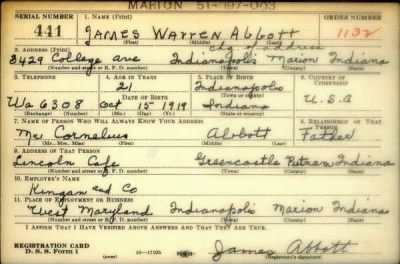 MARION 51-797-003
SERIAL NUMBER 1. NAME (Print) ORDER NUMBER
441 JAMES WARREN Abbott 1132
(First) (Middle) (Last)
chg of address
2. ADDRESS (Print)
3429 College ave Indianapolis Marion Indiana
(Number and street or R. F. D. number) (Town) (County) (State)
3. TELEPHONE 4. AGE IN YEARS 5. PLACE OF BIRTH 6. COUNTRY OF CITIZENSHIP
21 Indianapolis
DATE OF BIRTH (Town or county)
Wa 6308 Oct 15 1919 Indiana U.S.A
(Exchange) (Number) (Mo.) (Day) (Yr.) (State or country)
7. NAME OF PERSON WHO WILL ALWAYS KNOW YOUR ADDRESS 8. RELATIONSHIP OF THAT PERSON
Mr Cornelius Abbott Father
(Mr., Mrs., Miss) (First) (Middle) (Last)
9. ADDRESS OF THAT PERSON
Lincoln Cafe Greencastle Putnam Indiana
(Number and street or R. F. D. number) (Town) (County) (State)
10. EMPLOYER'S NAME
Kingan and Co
11. PLACE OF EMPLOYMENT OR BUSINESS
West Maryland Indianapolis Marion Indiana
(Number and street or R. F. D. number) (Town) (County) (State)
I AFFIRM THAT I HAVE VERIFIED ABOVE ANSWERS AND THAT THEY ARE TRUE.
REGISTRATION CARD
D. S. S. Form 1 (over) 16—17105 James Abbott
(Registrant's signature)